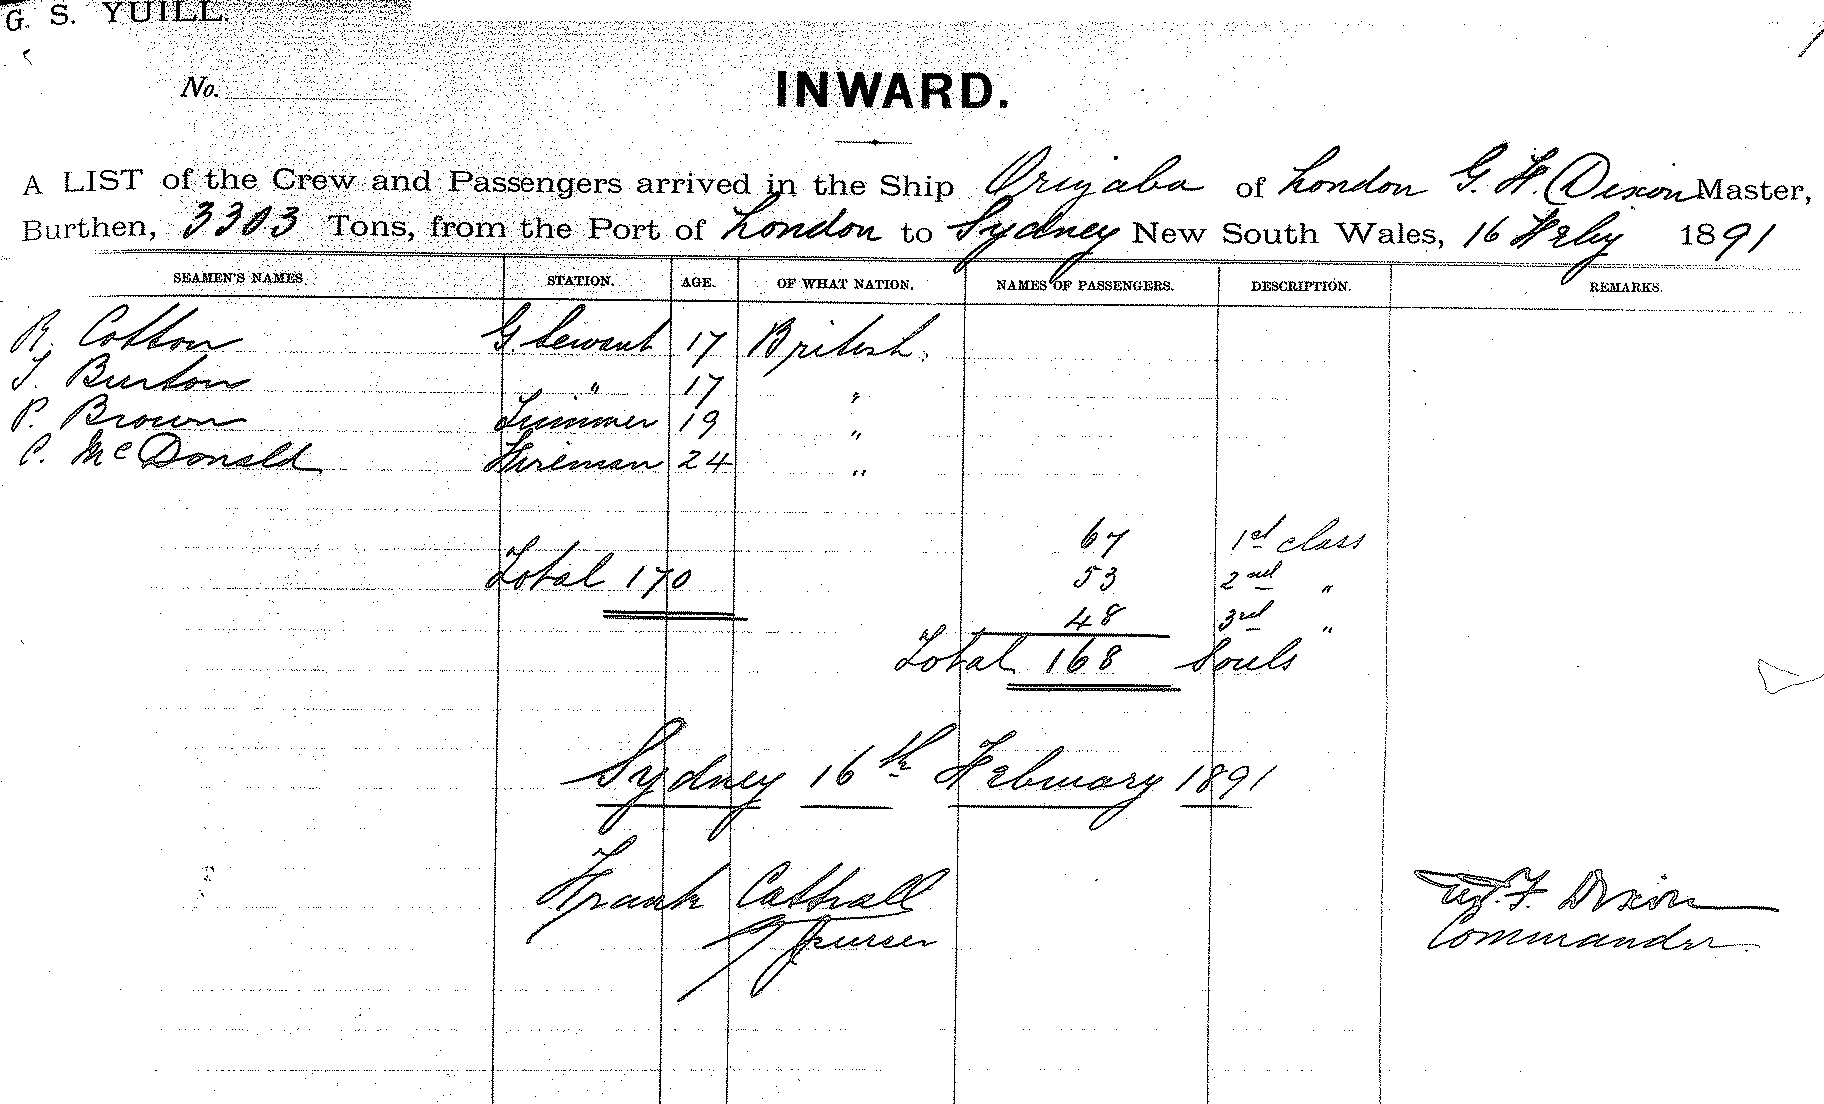 G. S. YUILL.
No.
INWARD.
A LIST of the Crew and Passengers arrived in the Ship Orizaba of London G. H. Dixon Master,
Burthen, 3303 Tons, from the Port of London to Sydney New South Wales, 16 Feby 1891
SEAMEN'S NAMES. STATION. AGE. OF WHAT NATION. NAMES OF PASSENGERS. DESCRIPTION. REMARKS.
R. Cotton G. Servant 17 British.
T. Burton " 17 "
P. Brown Trimmer 19 "
C. McDonald Fireman 24 "
67 1st class
Total 170 53 2nd "
48 3rd "
Total 168 Souls
Sydney 16th February 1891
Frank Cattrall
Purser
F. Dixon
Commander.